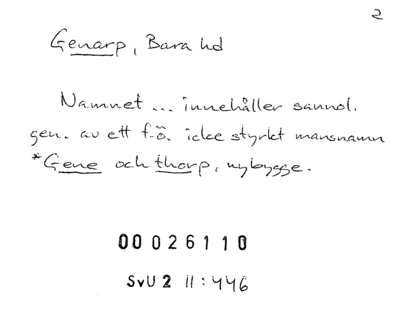 2
Genarp, Bara hd
Namnet ... innehåller sannol.
gen. av ett f.ö. icke styrkt mansnamn
*Gene och thorp, nybygge.
00 026110
SvU 2 11:446